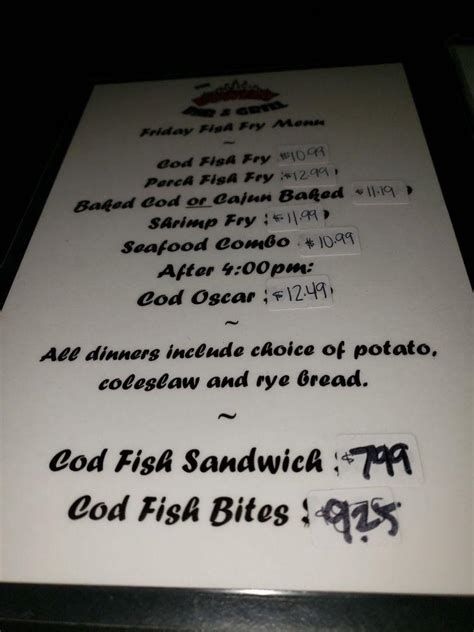 THE
BAR & GRILL
Friday Fish Fry Menu
~
Cod Fish Fry $10.99
Perch Fish Fry $12.99
Baked Cod or Cajun Baked $11.19
Shrimp Fry $11.99
Seafood Combo $10.99
After 4:00pm:
Cod Oscar $12.49
~
All dinners include choice of potato,
coleslaw and rye bread.
~
Cod Fish Sandwich $7.99
Cod Fish Bites $9.25